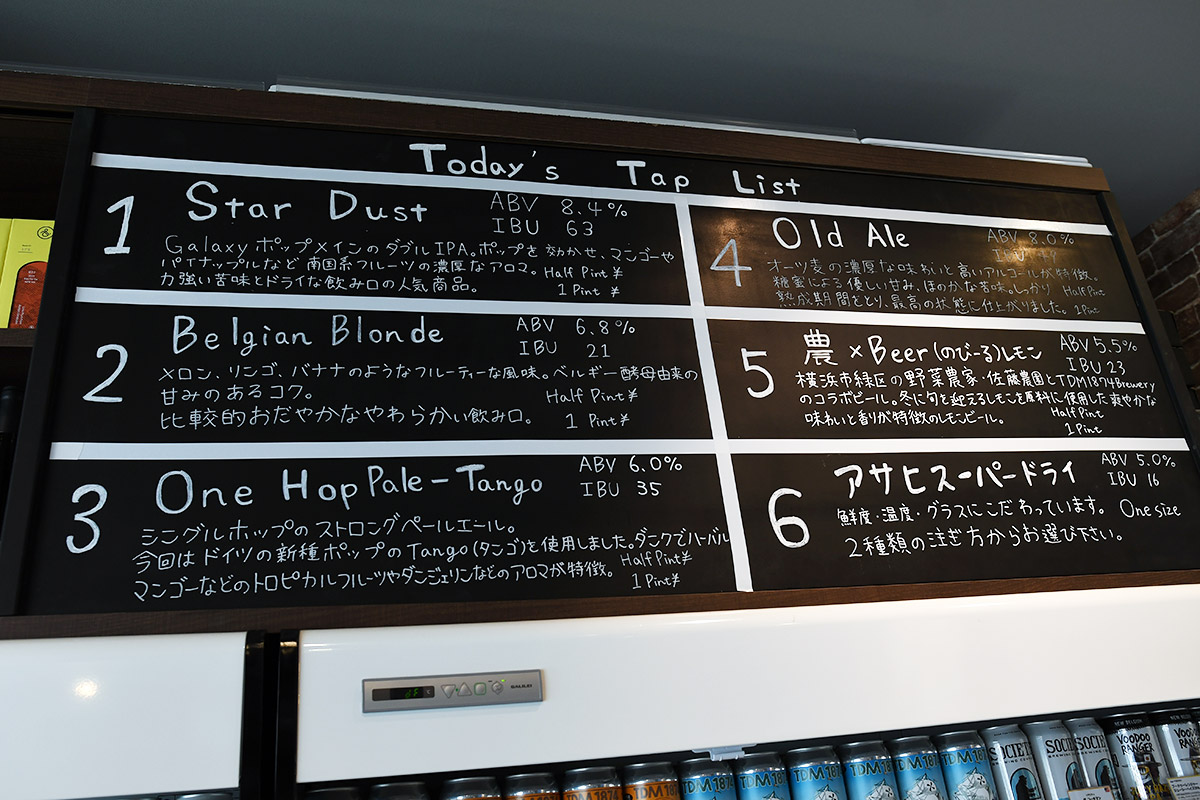 Today's Tap List
1 Star Dust ABV 8.4%
IBU 63
Galaxyホップメインのダブル IPA。ホップを効かせ、マンゴーや
パイナップルなど 南国系フルーツの濃厚なアロマ。 Half Pint ¥
力強い苦味とドライな飲み口の人気商品。 1 Pint ¥
2 Belgian Blonde ABV 6.8%
IBU 21
メロン、リンゴ、バナナのようなフルーティーな風味。ベルギー酵母由来の
甘みのあるコク。 Half Pint ¥
比較的おだやかなやわらかい飲み口。 1 Pint ¥
3 One Hop Pale-Tango ABV 6.0%
IBU 35
シングルホップのストロングペールエール。
今回はドイツの新種ホップのTango(タンゴ)を使用しました。ダンクでハーバル
マンゴーなどのトロピカルフルーツやダンジェリンなどのアロマが特徴。 Half Pint¥
1 Pint¥
4 Old Ale ABV 8.0%
IBU
オーツ麦の濃厚な味わいと高いアルコールが特徴。
糖蜜による優しい甘み、ほのかな苦味。しっかり Half Pint
熟成期間をとり、最高の状態に仕上がりました。 1 Pint
5 農×Beer(のびーる)レモン ABV 5.5%
IBU 23
横浜市緑区の野菜農家・佐藤農園とTDM1874Brewery
のコラボビール。冬に旬を迎えるレモンを原料に使用した爽やかな
味わいと香りが特徴のレモンビール。 Half Pint
1 Pint
6 アサヒスーパードライ ABV 5.0%
IBU 16
鮮度・温度・グラスにこだわっています。 One size
2種類の注ぎ方からお選び下さい。
GALILEI
TDM 1874
TDM 1874
TDM 1874
TDM 1874
SOCIETE
SOCIETE
NEW BELGIUM
VOODOO
RANGER